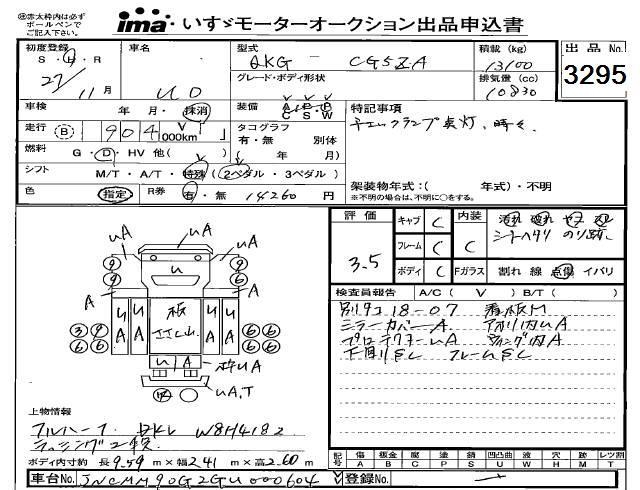 ㊟赤太枠内は必ず
ボールペンで
ご記入下さい。
ima いすゞモーターオークション出品申込書
初度登録
S・H・R
27/11月
車名
UD
型式
QKG - CG5ZA
グレード・ボディ形状
積載(kg)
13100
排気量(cc)
10830
出品No.
3295
車検 年・月・抹消
装備 A B P C S W
走行 (B) 904 000km
タコグラフ
有・無 別体
( 年 月)
燃料 G・D・HV 他( )
シフト M/T・A/T・特殊(2ペダル・3ペダル)
色 指定 R券 有・無 14260円
特記事項
チェックランプ点灯、時々。
架装物年式:( 年式)・不明
※不明の場合は、不明に○をする。
評価 3.5
キャブ C
フレーム C
ボディ C
内装 C
シートヘタリ のり跡
Fガラス 割れ 線 点傷 イバリ
検査員報告 A/C( V ) B/T( )
別タコ18-07 看板M
ミラーカバーA アオリ内uA
プロテクターuA ウィング内A
下回りSC フレームSC
uA uA
u
9 9 6 6
A A
uA uA uA uA
板
3 9 6 6
6 6 6 6
u A 枠uA
uA,T
上物情報
フルハーフ DKL W8H4182
ラッシング2段
ボディ内寸約 長9.59m×幅2.41m×高2.60m
記号 傷A 板金B 腐C 塗P 錆S 凹凸凹U 波W 穴H 跡M レツ割T
車台No. JNCMM90G2GU000604
登録No.